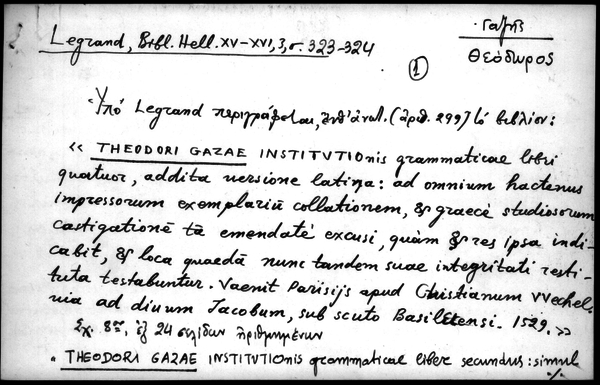 Γαζῆς
Θεόδωρος
Legrand, Bibl. Hell. XV-XVI, 3, σ. 323-324
1
Ὑπό Legrand περιγράφεται, (ἀριθ. 299) τό βιβλίον:
« THEODORI GAZAE INSTITVTIOnis grammaticae libri
quatuor, addita versione latina: ad omnium hactenus
impressorum exemplariũ collationem, & graecè studiosorum
castigationẽ tã emendatè excusi, quàm & res ipsa indi-
cabit, & loca quaedã nunc tandem suae integritati resti-
tuta testabuntur. Vaenit Parisijs apud Christianum VVechel-
num ad diuum Iacobum, sub scuto Basileensi. 1529. »
Σχ. 8ον, ἐξ 24 σελίδων ἠριθμημένων
« THEODORI GAZAE INSTITVTIOnis grammaticae liber secundus: simul
./.